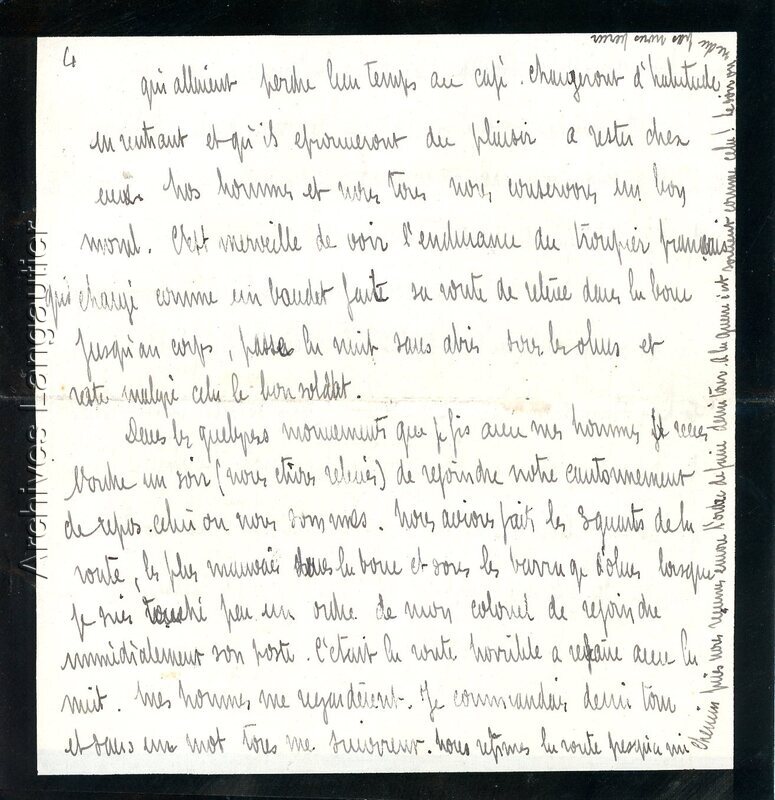 4
qui allaient perdre leur temps au café. changeront d'habitude
en rentrant et qu'ils eprouveront du plaisir a rester chez
eux. Nos hommes et nous tous nous conservons un bon
moral. C'est merveille de voir l'endurance du troupier français
qui chargé comme un baudet faite sa route de relève dans la boue
jusqu'au corps, passe la nuit sans abris sous les obus et
reste malgré cela le bon soldat.
Dans les quelques mouvements que je fis avec mes hommes je reçus
l'ordre un soir (nous etions relevés) de rejoindre notre cantonnement
de repos. celui ou nous sommes. Nous avions fait les 3 quarts de la
route, les plus mauvais dans la boue et sous les barrage d'obus lorsque
je suis touché par un ordre de mon colonel de rejoindre
immédiatement son poste. C'était la route horrible a refaire avec la
nuit. Mes hommes me regardèrent. Je commandais demi tour
et sans un mot tous me suivirent. Nous refîmes la route jusqu'a mi
chemin puis nous reçumes encore l'ordre de faire demi tour. A la guerre c'est souvent comme cela! le bon
pas nous
Archives Langautier